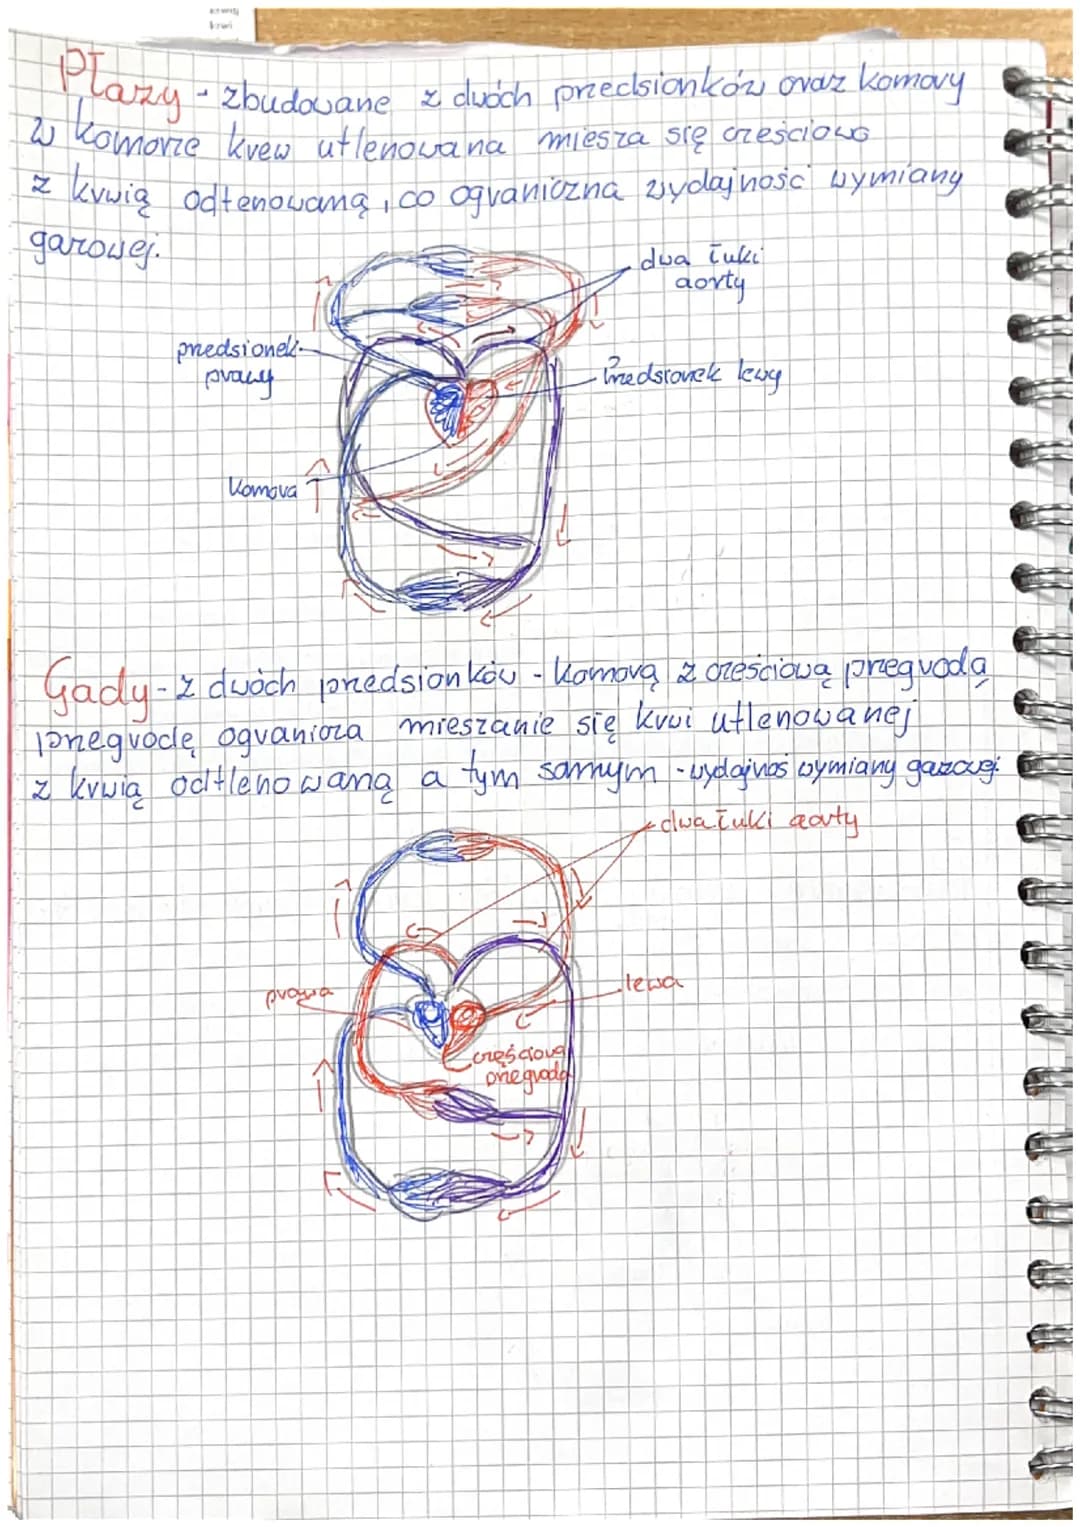 krwi
Płazy - zbudowane z dwóch przedsionków oraz komory
w komorze krew utlenowana miesza się cześciowo
z krwią odtlenowaną, co ograniczna wydajność wymiany
gazowej.
dwa łuki
aorty
przedsionek
prawy
Przedsionek lewy
Komora
Gady - z dwóch przedsionków - komorą z cześciową przegrodą
przegrodę ogranicza mieszanie się krwi utlenowanej
z krwią odtlenowaną a tym samym - wydajnoś wymiany gazowej.
dwa łuki aorty
prawa
lewa
częściowa
przegroda